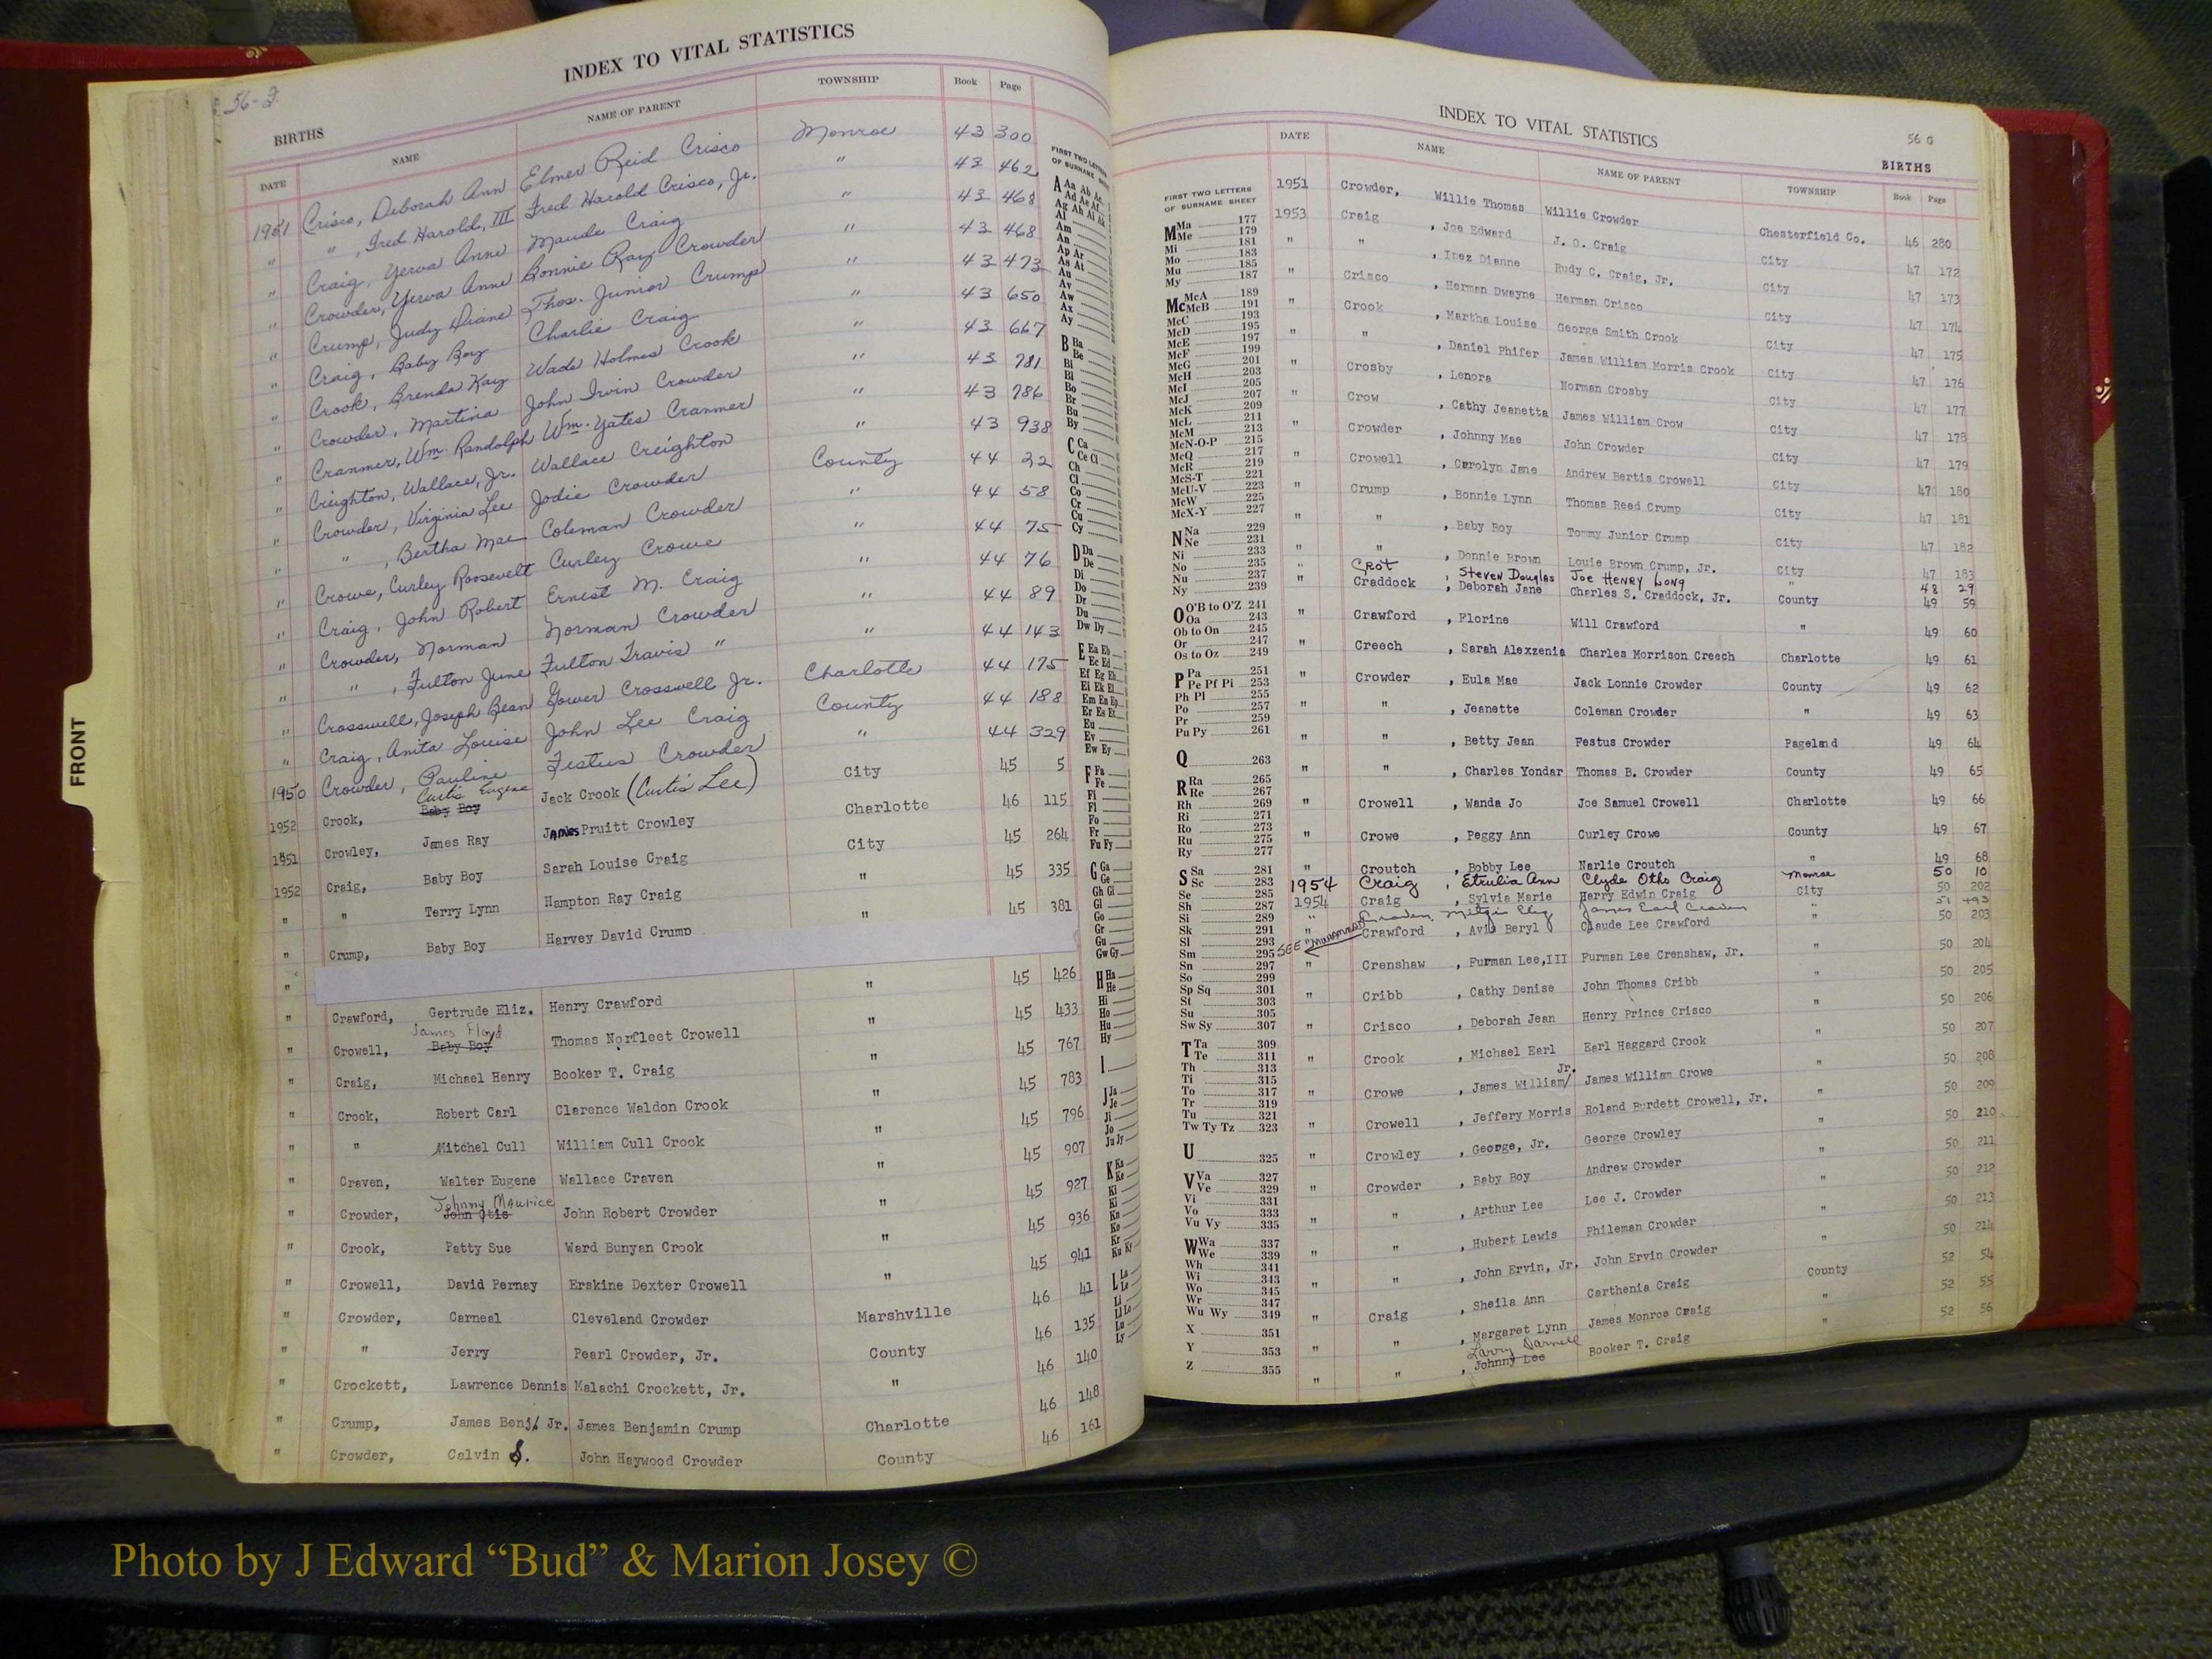 56-J
INDEX TO VITAL STATISTICS
BIRTHS
DATE NAME NAME OF PARENT TOWNSHIP Book Page
1951 Crisco, Deborah Ann Elmer Reid Crisco Monroe 43 300
" " , Fred Harold, III Fred Harold Crisco, Jr. " 43 462
" Craig, Yerva Anne Maude Craig " 43 468
" Crowder, Yerva Anne Bonnie Ray Crowder " 43 468
" Crump, Judy Diane Thos. Junior Crump " 43 473
" Craig, Baby Boy Charlie Craig " 43 650
" Crook, Brenda Kay Wade Holmes Crook " 43 667
" Crowder, Martina John Irvin Crowder " 43 781
" Cranmer, Wm. Randolph Wm. Yates Cranmer " 43 786
" Creighton, Wallace, Jr. Wallace Creighton " 43 938
" Crowder, Virginia Lee Jodie Crowder County 44 22
" " , Bertha Mae Coleman Crowder " 44 58
" Crowe, Curley Roosevelt Curley Crowe " 44 75
" Craig, John Robert Ernest M. Craig " 44 76
" Crowder, Norman Norman Crowder " 44 89
" " , Fulton June Fulton Travis " " 44 143
" Crosswell, Joseph Bean Gower Crosswell Jr. Charlotte 44 175
" Craig, Anita Louise John Lee Craig County 44 188
1950 Crowder, Pauline Festus Crowder " 44 329
1952 Crook, Curtis Eugene Baby Boy Jack Crook (Curtis Lee) City 45 5
1951 Crowley, James Ray James Pruitt Crowley Charlotte 46 115
1952 Craig, Baby Boy Sarah Louise Craig City 45 264
" " Terry Lynn Hampton Ray Craig " 45 335
" Crump, Baby Boy Harvey David Crump " 45 381
"
" Crawford, Gertrude Eliz. Henry Crawford " 45 426
" Crowell, James Floyd Baby Boy Thomas Norfleet Crowell " 45 433
" Craig, Michael Henry Booker T. Craig " 45 767
" Crook, Robert Carl Clarence Waldon Crook " 45 783
" " Mitchel Cull William Cull Crook " 45 796
" Craven, Walter Eugene Wallace Craven " 45 907
" Crowder, Johnny Maurice John Otis John Robert Crowder " 45 927
" Crook, Patty Sue Ward Bunyan Crook " 45 936
" Crowell, David Pernay Erskine Dexter Crowell " 45 941
" Crowder, Carneal Cleveland Crowder Marshville 46 41
" " Jerry Pearl Crowder, Jr. County 46 135
" Crockett, Lawrence Dennis Malachi Crockett, Jr. " 46 140
" Crump, James Benj. Jr. James Benjamin Crump Charlotte 46 148
" Crowder, Calvin S. John Haywood Crowder County 46 161
FRONT
FIRST TWO LETTERS
OF SURNAME SHEET
A Aa Ab Ac
Ad Ae Af
Ag Ah Ai Ak
Al
Am
An
Ap Ar
As At
Au
Av
Aw
Ax
Ay
B Ba
Be
Bi
Bl
Bo
Br
Bu
By
C Ca
Ce Ci
Ch
Cl
Co
Cr
Cu
Cy
D Da
De
Di
Do
Dr
Du
Dw Dy
E Ea Eb
Ec Ed
Ef Eg Eh
Ei Ek El
Em En Ep
Er Es Et
Eu
Ev
Ew Ey
F Fa
Fe
Fi
Fl
Fo
Fr
Fu Fy
G Ga
Ge
Gh Gi
Gl
Go
Gr
Gu
Gw Gy
H Ha
He
Hi
Ho
Hu
Hy
I
J Ja
Je
Ji
Jo
Ju Jy
K Ka
Ke
Ki
Kl
Kn
Ko
Kr
Ku Ky
L La
Le
Li
Ll Lo
Lu
Ly
INDEX TO VITAL STATISTICS
56 G
BIRTHS
DATE NAME NAME OF PARENT TOWNSHIP Book Page
FIRST TWO LETTERS
OF SURNAME SHEET
M Ma 177
Me 179
Mi 181
Mo 183
Mu 185
My 187
Mc McA 189
McB 191
McC 193
McD 195
McE 197
McF 199
McG 201
McH 203
McI 205
McJ 207
McK 209
McL 211
McM 213
McN-O-P 215
McQ 217
McR 219
McS-T 221
McU-V 223
McW 225
McX-Y 227
N Na 229
Ne 231
Ni 233
No 235
Nu 237
Ny 239
O O'B to O'Z 241
Oa 243
Ob to On 245
Or 247
Os to Oz 249
P Pa 251
Pe Pf Pi 253
Ph Pl 255
Po 257
Pr 259
Pu Py 261
Q 263
R Ra 265
Re 267
Rh 269
Ri 271
Ro 273
Ru 275
Ry 277
S Sa 281
Sc 283
Se 285
Sh 287
Si 289
Sk 291
Sl 293
Sm 295
Sn 297
So 299
Sp Sq 301
St 303
Su 305
Sw Sy 307
T Ta 309
Te 311
Th 313
Ti 315
To 317
Tr 319
Tu 321
Tw Ty Tz 323
U 325
V Va 327
Ve 329
Vi 331
Vo 333
Vu Vy 335
W Wa 337
We 339
Wh 341
Wi 343
Wo 345
Wr 347
Wu Wy 349
X 351
Y 353
Z 355
1951 Crowder, Willie Thomas Willie Crowder Chesterfield Co. 46 280
1953 Craig , Joe Edward J. O. Craig City 47 172
" " , Inez Dianne Rudy C. Craig, Jr. City 47 173
" Crisco , Herman Dwayne Herman Crisco City 47 174
" Crook , Martha Louise George Smith Crook City 47 175
" " , Daniel Phifer James William Morris Crook City 47 176
" Crosby , Lenora Norman Crosby City 47 177
" Crow , Cathy Jeanetta James William Crow City 47 178
" Crowder , Johnny Mae John Crowder City 47 179
" Crowell , Carolyn Jane Andrew Bertis Crowell City 47 180
" Crump , Bonnie Lynn Thomas Reed Crump City 47 181
" " , Baby Boy Tommy Junior Crump City 47 182
" " , Donnie Brown Louie Brown Crump, Jr. City 47 183
" Crot , Steven Douglas Joe Henry Long " 48 29
" Craddock , Deborah Jane Charles S. Craddock, Jr. County 49 59
" Crawford , Florine Will Crawford " 49 60
" Creech , Sarah Alexzenia Charles Morrison Creech Charlotte 49 61
" Crowder , Eula Mae Jack Lonnie Crowder County 49 62
" " , Jeanette Coleman Crowder " 49 63
" " , Betty Jean Festus Crowder Pageland 49 64
" " , Charles Yondar Thomas B. Crowder County 49 65
" Crowell , Wanda Jo Joe Samuel Crowell Charlotte 49 66
" Crowe , Peggy Ann Curley Crowe County 49 67
" Croutch , Bobby Lee Narlie Croutch " 49 68
1954 Craig , Etrulia Ann Clyde Otho Craig Monroe 50 10
1954 Craig , Sylvia Marie Harry Edwin Craig City 50 202
" Craven, Mitzi Eliz James Earl Craven " 51 493
SEE
" Crawford , Avis Beryl Claude Lee Crawford " 50 203
" Crenshaw , Furman Lee,III Furman Lee Crenshaw, Jr. " 50 204
" Cribb , Cathy Denise John Thomas Cribb " 50 205
" Crisco , Deborah Jean Henry Prince Crisco " 50 206
" Crook , Michael Earl Earl Haggard Crook " 50 207
" Crowe , James William/ Jr. James William Crowe " 50 208
" Crowell , Jeffery Morris Roland Burdett Crowell, Jr. " 50 209
" Crowley , George, Jr. George Crowley " 50 210
" Crowder , Baby Boy Andrew Crowder " 50 211
" " , Arthur Lee Lee J. Crowder " 50 212
" " , Hubert Lewis Phileman Crowder " 50 213
" " , John Ervin, Jr. John Ervin Crowder " 50 214
" Craig , Sheila Ann Carthenia Craig County 52 54
" " , Margaret Lynn James Monroe Craig " 52 55
" " , Larry Darnell Johnny Lee Booker T. Craig " 52 56
Photo by J Edward “Bud” & Marion Josey ©